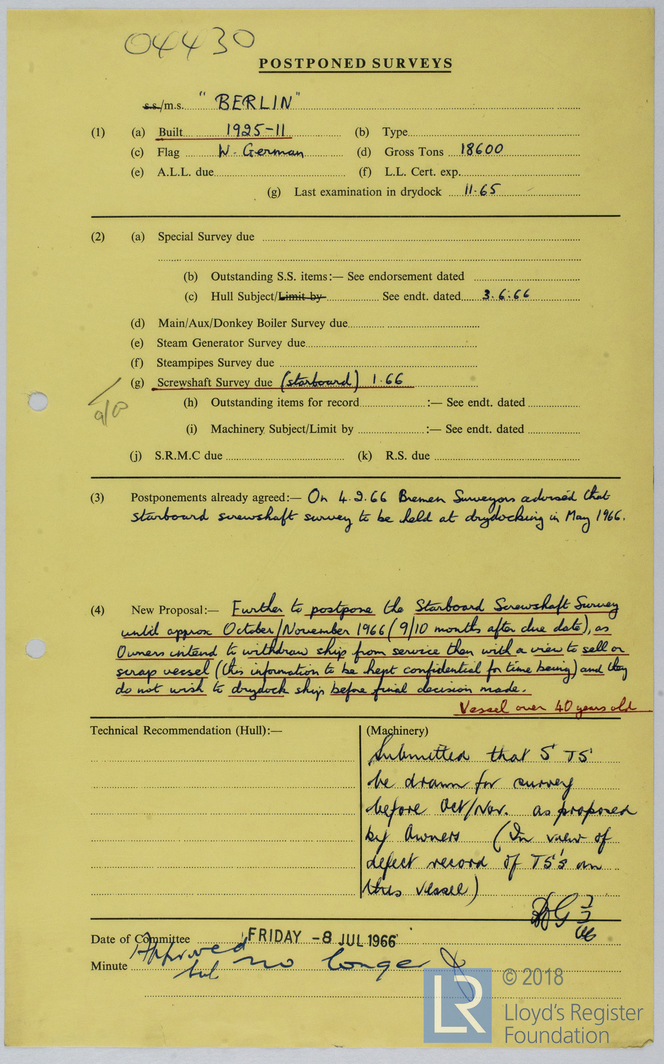 04430
POSTPONED SURVEYS
s.s./m.s. "BERLIN"
(1) (a) Built 1925-11 (b) Type
(c) Flag W. German (d) Gross Tons 18600
(e) A.L.L. due (f) L.L. Cert. exp.
(g) Last examination in drydock 11.65
(2) (a) Special Survey due
(b) Outstanding S.S. items:— See endorsement dated
(c) Hull Subject/Limit by See endt. dated 3.6.66
(d) Main/Aux/Donkey Boiler Survey due
(e) Steam Generator Survey due
(f) Steampipes Survey due
(g) Screwshaft Survey due (starboard) 1.66
(h) Outstanding items for record :— See endt. dated
(i) Machinery Subject/Limit by :— See endt. dated
(j) S.R.M.C due (k) R.S. due
(3) Postponements already agreed:— On 4.2.66 Bremen Surveyors advised that
starboard screwshaft survey to be held at drydocking in May 1966.
(4) New Proposal:— Further to postpone the Starboard Screwshaft Survey
until approx October/November 1966 (9/10 months after due date), as
Owners intend to withdraw ship from service then with a view to sell or
scrap vessel (this information to be kept confidential for time being) and they
do not wish to drydock ship before final decision made.
Vessel over 40 years old
Technical Recommendation (Hull):— (Machinery)
Submitted that S TS
be drawn for survey
before Oct/Nov. as proposed
by Owners (In view of
defect record of TS's on
this vessel)
Date of Committee FRIDAY -8 JUL 1966
Minute Approved
but no longer
LR
© 2018
Lloyd's Register
Foundation